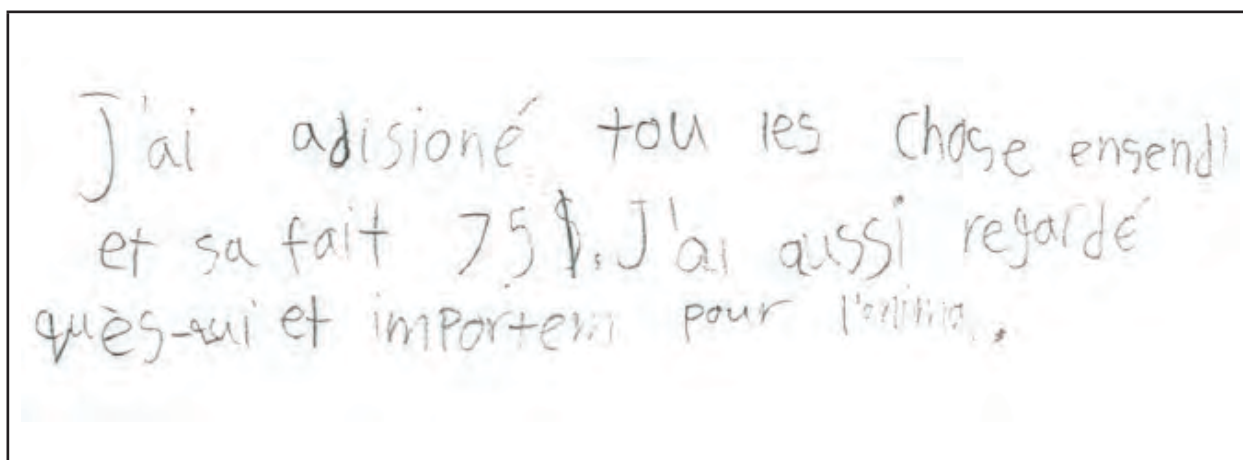 J'ai adisioné tou les chose ensendl
et sa fait 75$. J'ai aussi regardé
quès-qui et importem pour l'anima.